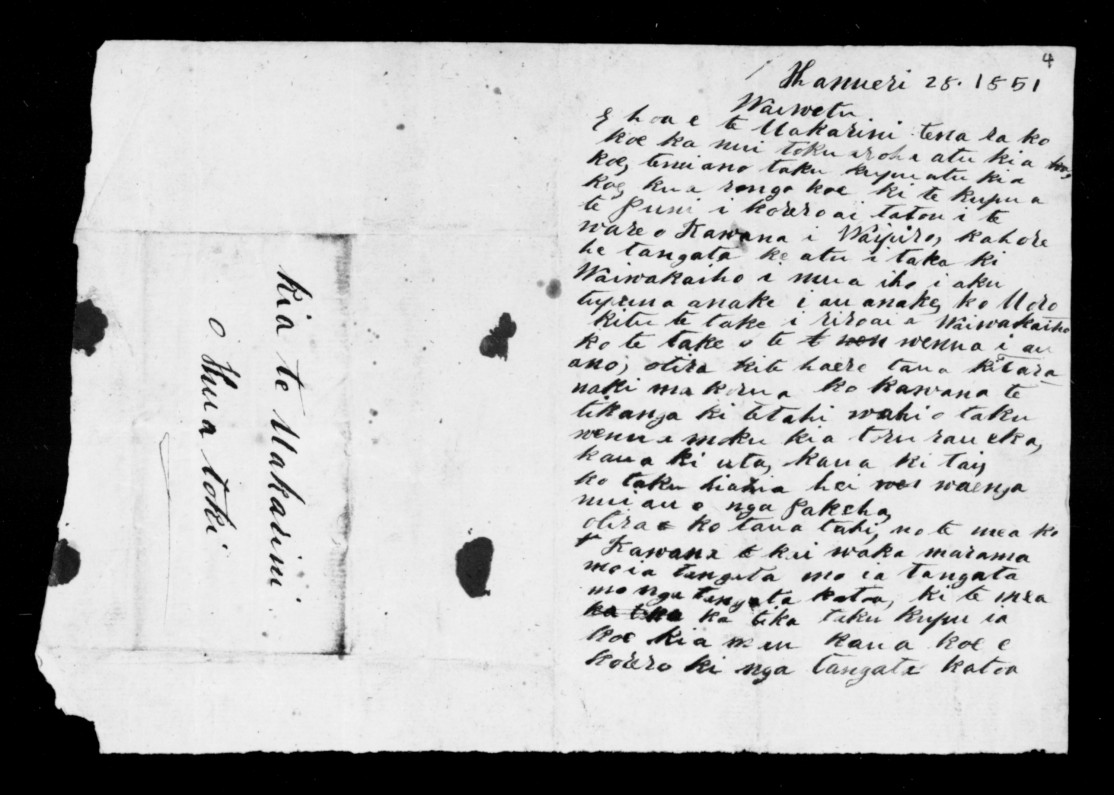 4
Hanueri 28. 1851
Waiwetu
E hoa e te Makarini tena ra ko
koe ka nui toku aroha atu kia koe,
koe, tenei ano taku kupu atu kia
koe, kua rongo koe ki te kupu a
te Puni i korero ai tatou i te
ware o Kawana i Waipiro, kahore
he tangata ke atu i taka ki
Waiwakaiho i mua iho i aku
tupuna anake i au anake, ko
kitu te take i riro ai a Waiwakaiho
ko te take o te wenua i au
ano, otira kite haere taua ki tara
naki ma korua ko kawana te
tikanga ki tetahi wahi o taku
wenua moku kia toru rau eka,
kaua ki uta, kaua ki tai,
ko taku hiahia hei waenga
nui ano nga Pakeha,
otira ko taua tahi, no te mea ko
Kawana te kai waka marama
mo ia tangata mo ia tangata
mo nga tangata katoa, ki te mea
ka tika ka tika taku kupu ia
koe kia mau kaua koe e
korero ki nga tangata katoa
Kia te Makarini
o Hua toki